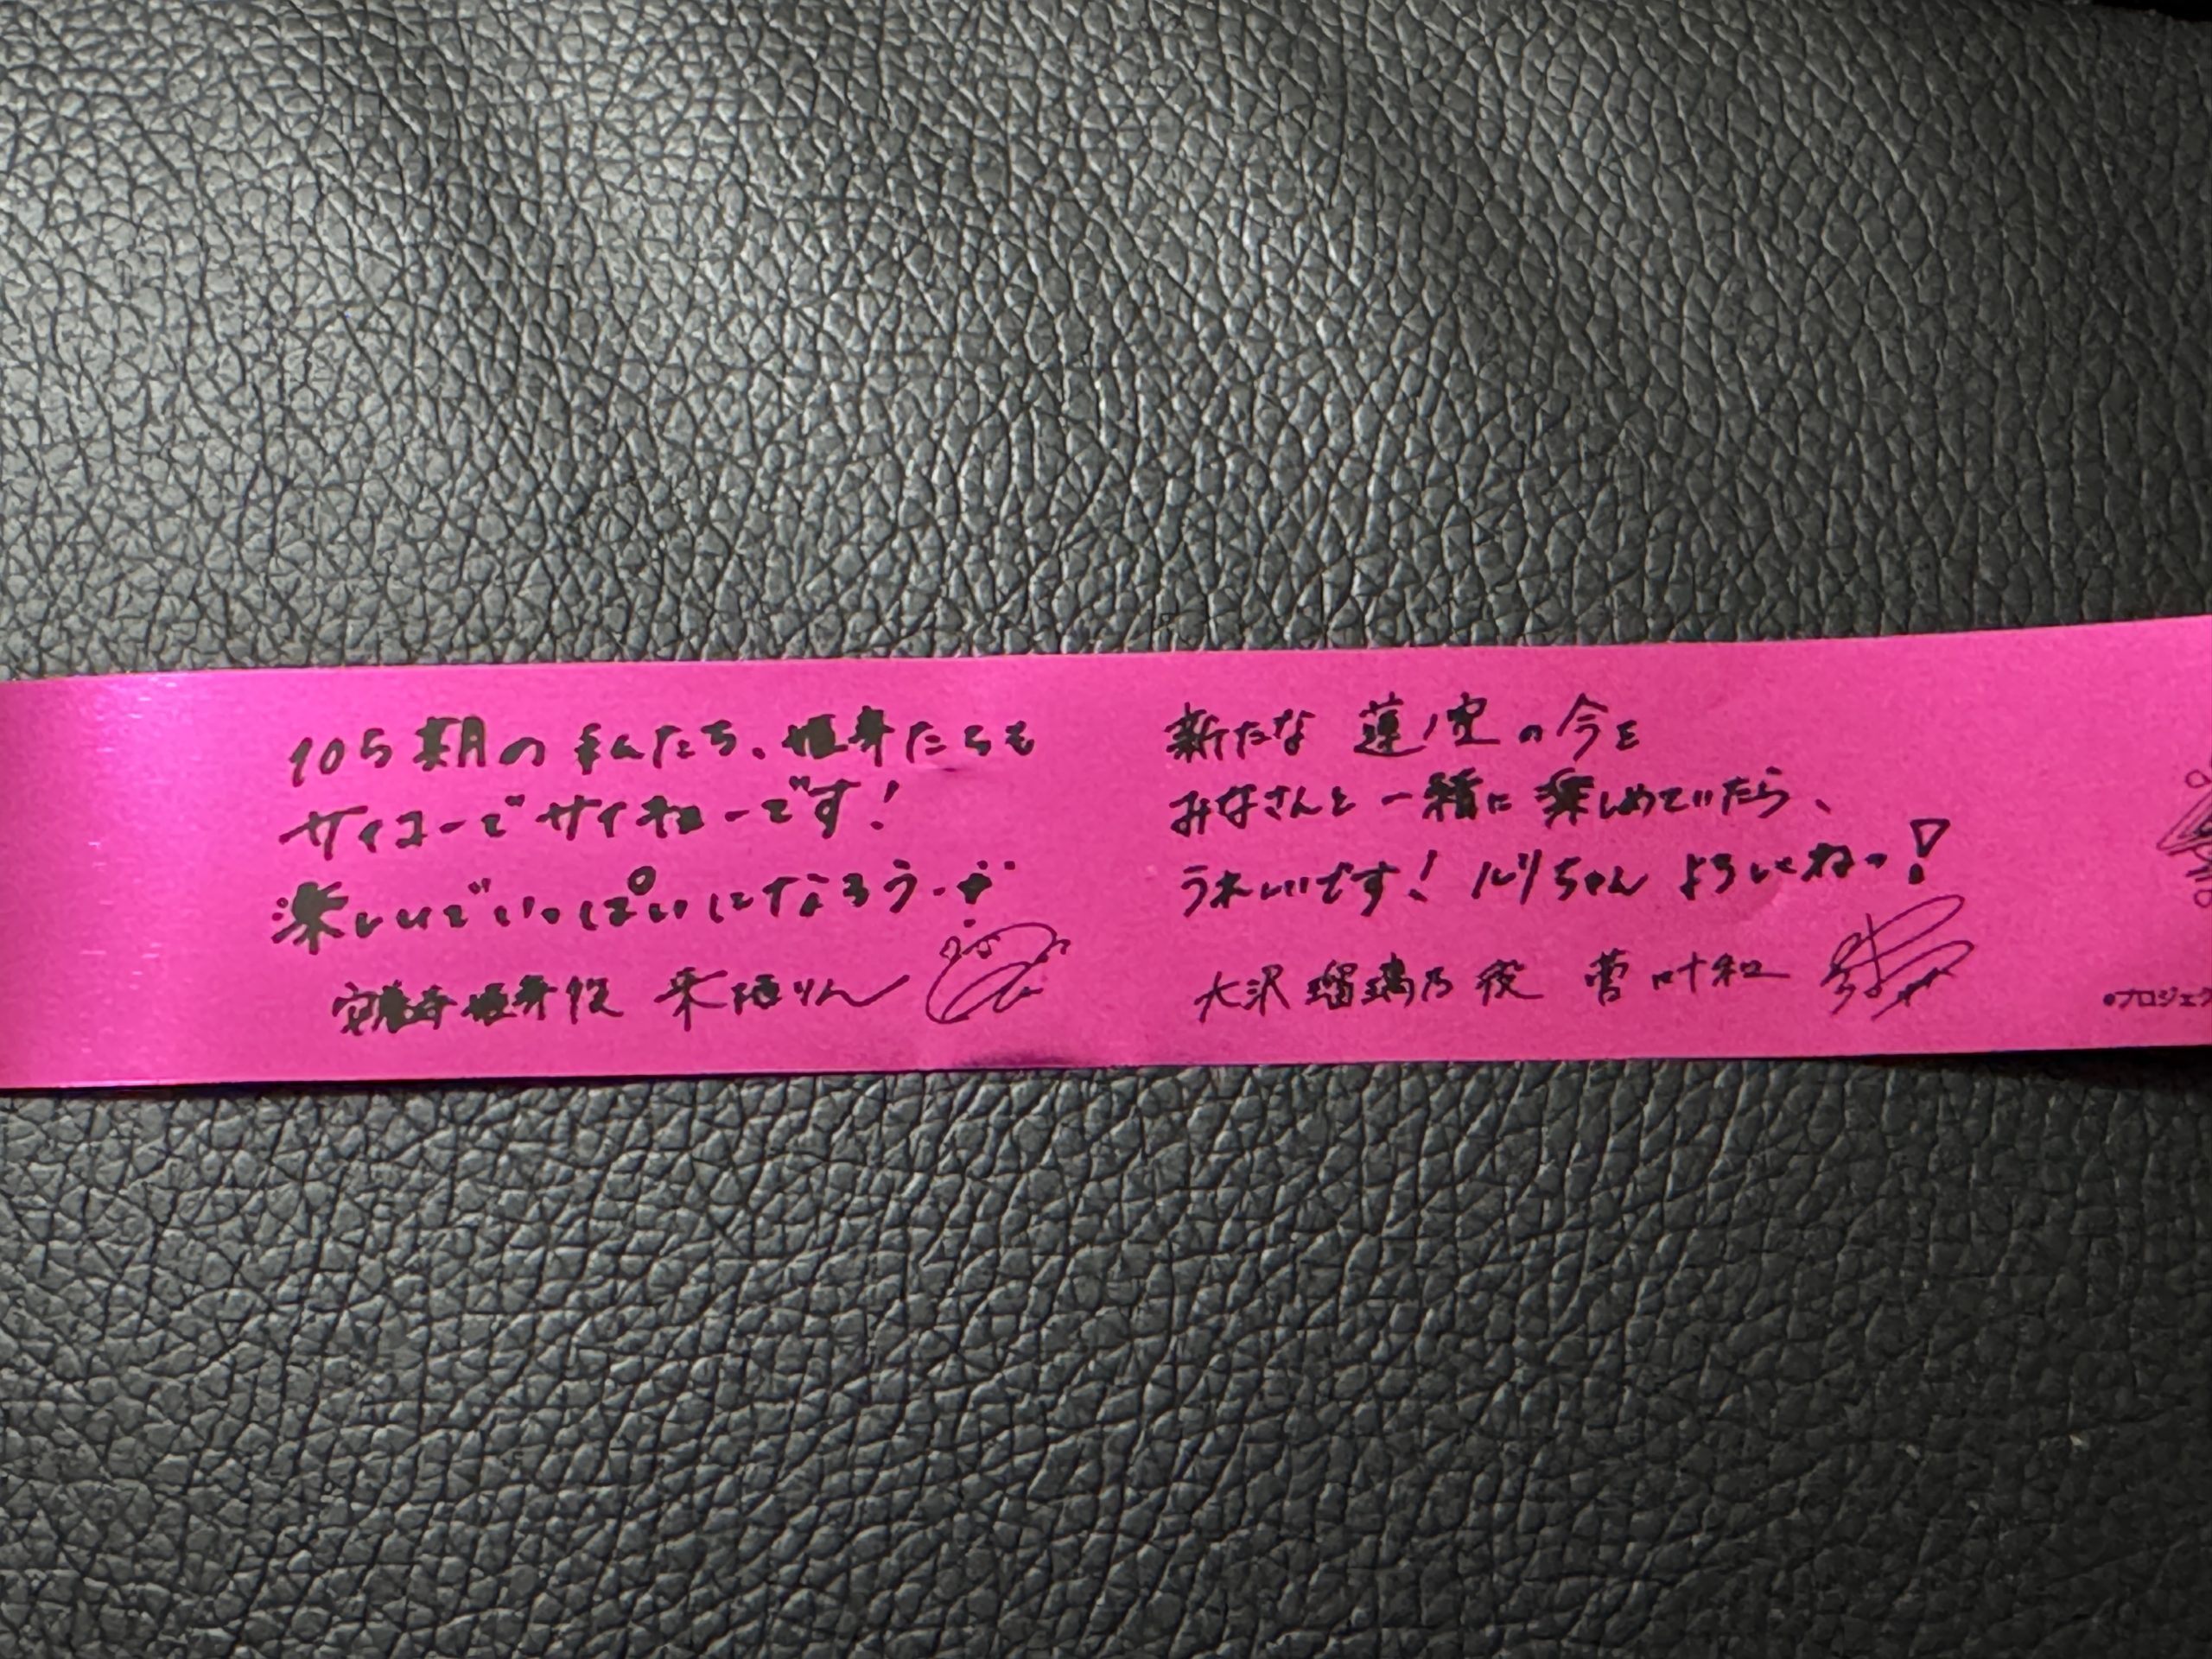 105期の私たち、姫芽たちも
サイコーでサイキョーです!
楽しいでいっぱいになろう
安養寺姫芽役 来栖りん
新たな 蓮ノ空の今を
みなさんと一緒に楽しめていたら、
うれしいです! ルリちゃん よろしくねっ!
大沢瑠璃乃役 菅叶和
プロジェク